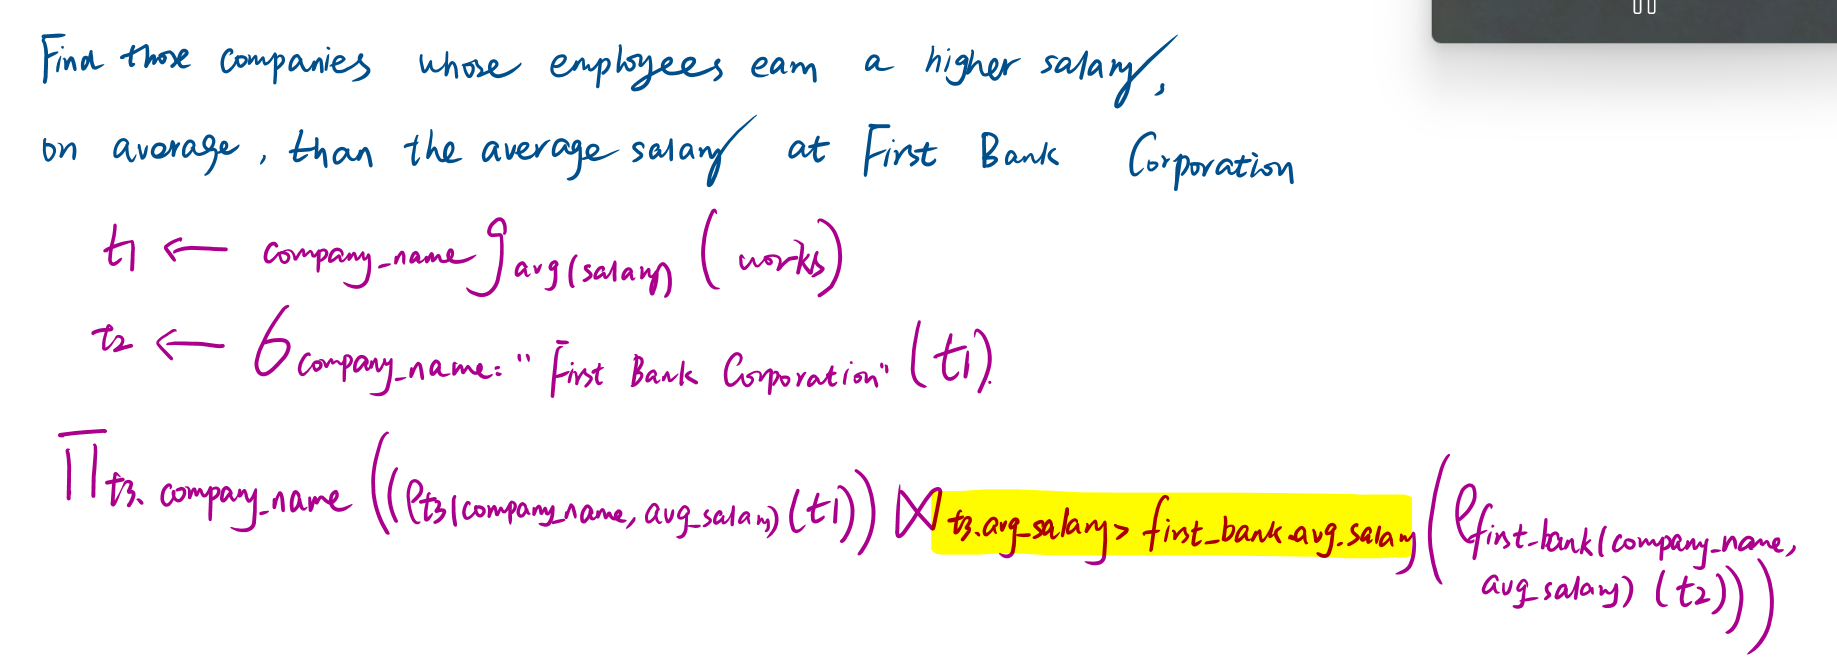 Find those companies whose employees earn a higher salary,
on average, than the average salary at First Bank Corporation
t1 ← company_name 𝒢 avg(salary) (works)
t2 ← σ company_name="First Bank Corporation" (t1)
Π t3.company_name ((ρ t3(company_name, avg_salary) (t1)) ⋈ t3.avg_salary > first_bank.avg.salary (ρ first_bank(company_name,
avg_salary) (t2)))